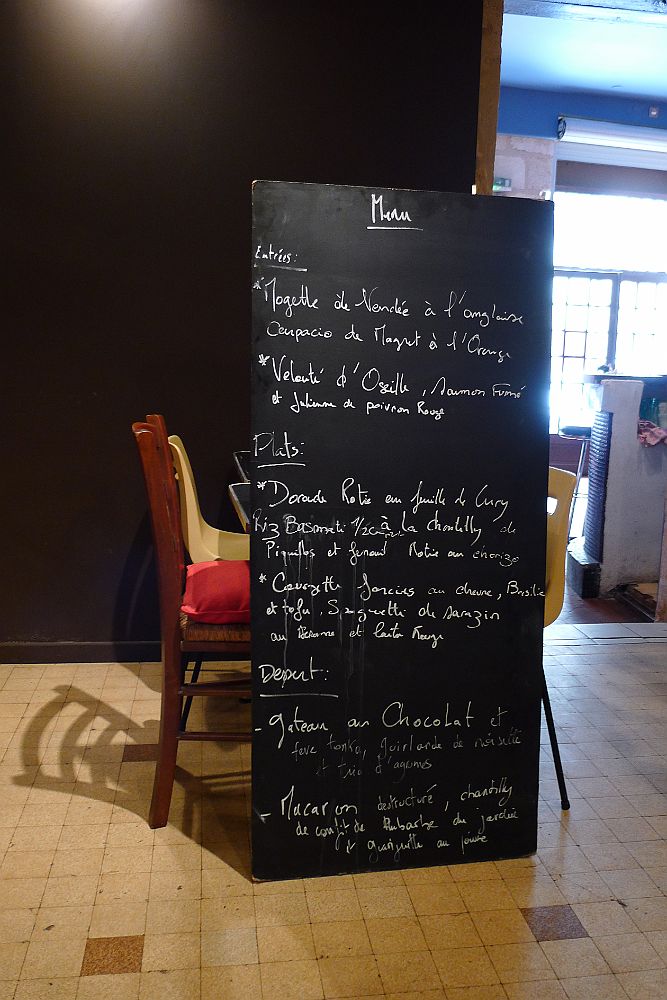 Menu
Entrées:
*Mogette de Vendée à l'anglaise
Carpacio de Magret à l'Orange
*Velouté d'Oseille, Saumon Fumé
et Julienne de poivron Rouge
Plats:
*Dorade Rotie en feuille de Curry
Riz Basmati 1/2 à la Chantilly de
Piquillos et fenouil Rotie au chorizo
*Courgette farcies au chevre, Basilic
et tofu, Galette de sarazin
au et Rouge
Desert:
- gateau au Chocolat et
feve tonka, guirlande de noisette
et trio d'agrumes
- Macaron destructuré, chantilly
de confit de Rubarbe du jardin
et gariguette au poivre